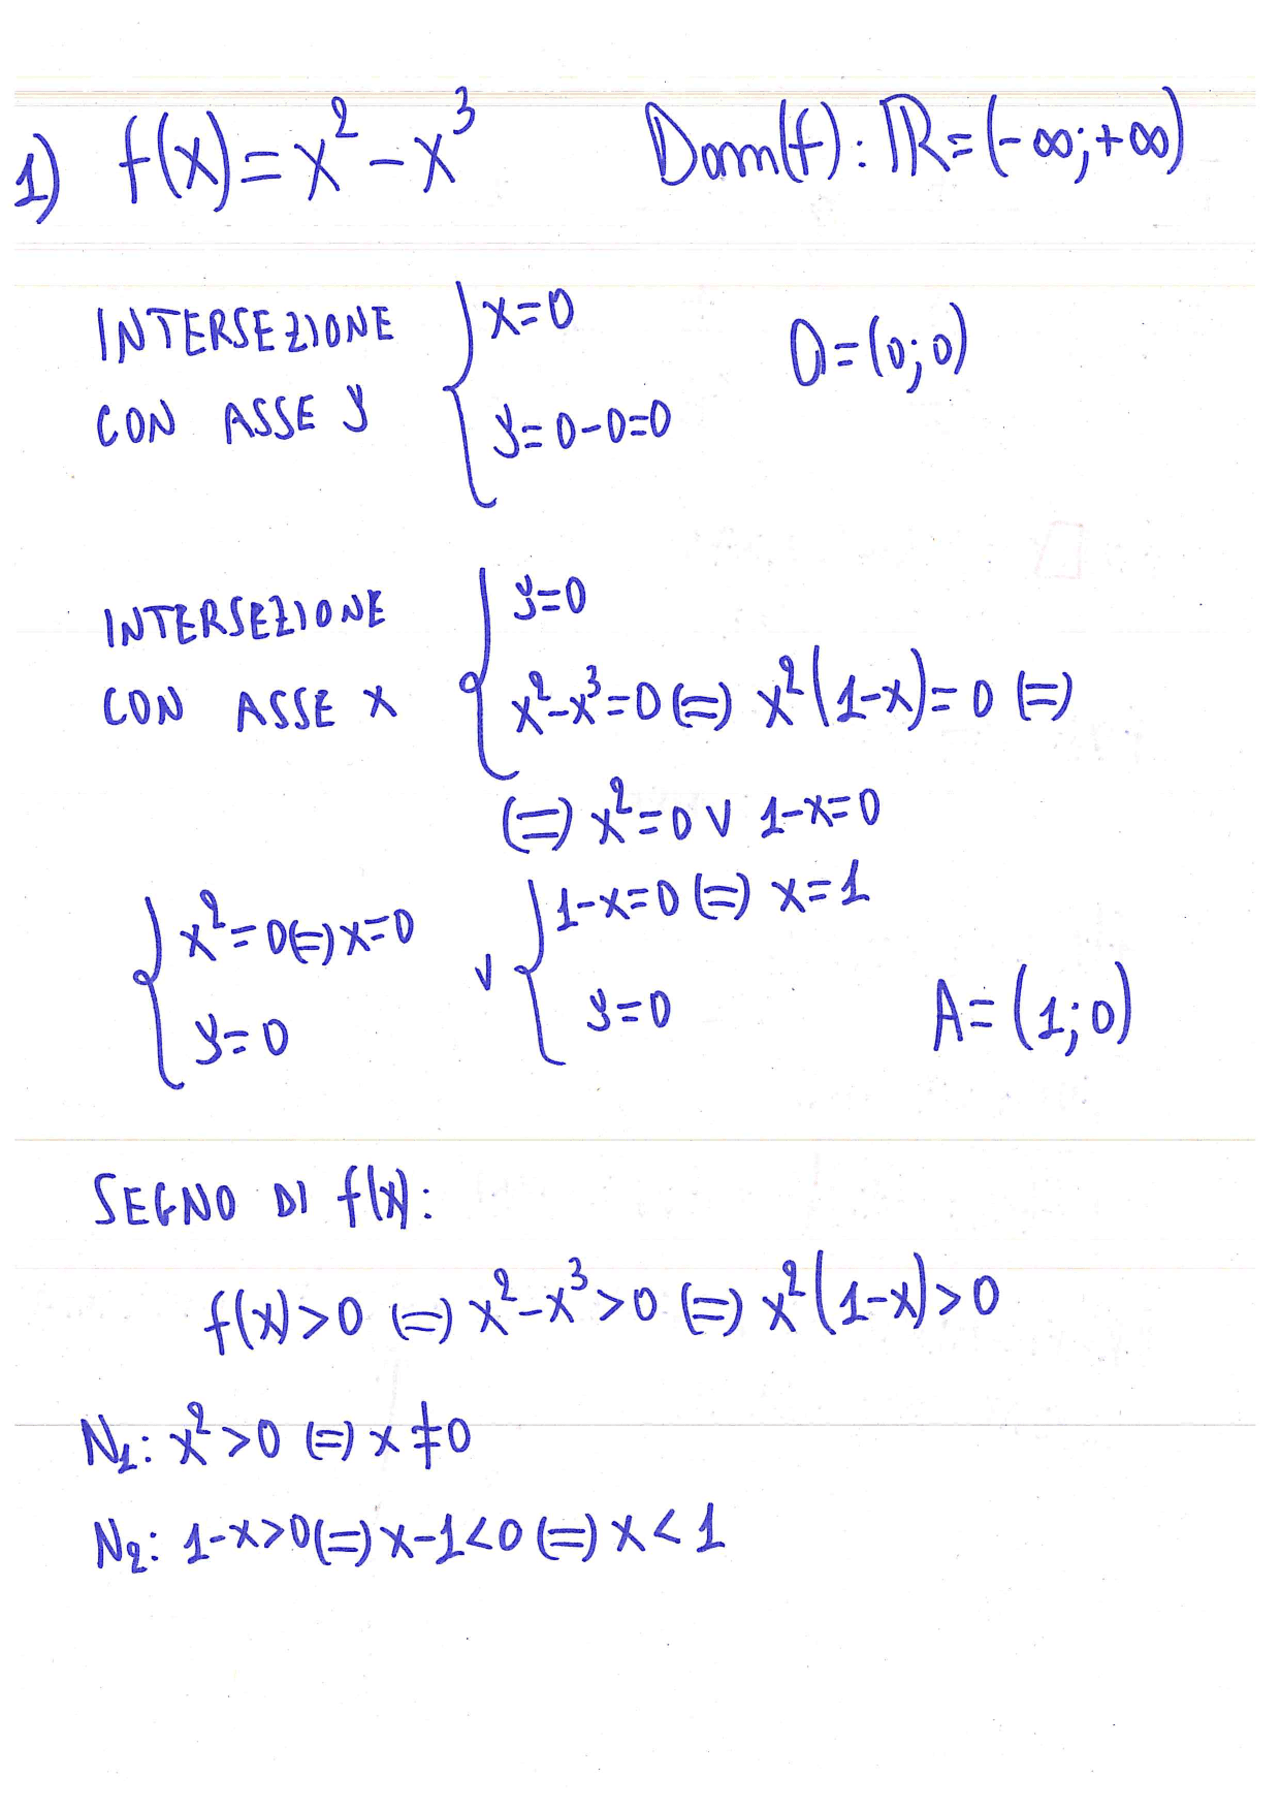 1) f(x)=x²-x³ Dom(f): ℝ=(-∞;+∞)
INTERSEZIONE CON ASSE y { x=0
y=0-0=0
O=(0;0)
INTERSEZIONE CON ASSE X { y=0
x²-x³=0 (=) x²(1-x)=0 (=)
(=) x²=0 ∨ 1-x=0
{ x²=0 (=) x=0
y=0
∨ { 1-x=0 (=) x=1
y=0
A=(1;0)
SEGNO DI f(x):
f(x)>0 (=) x²-x³>0 (=) x²(1-x)>0
N₁: x²>0 (=) x≠0
N₂: 1-x>0 (=) x-1<0 (=) x<1